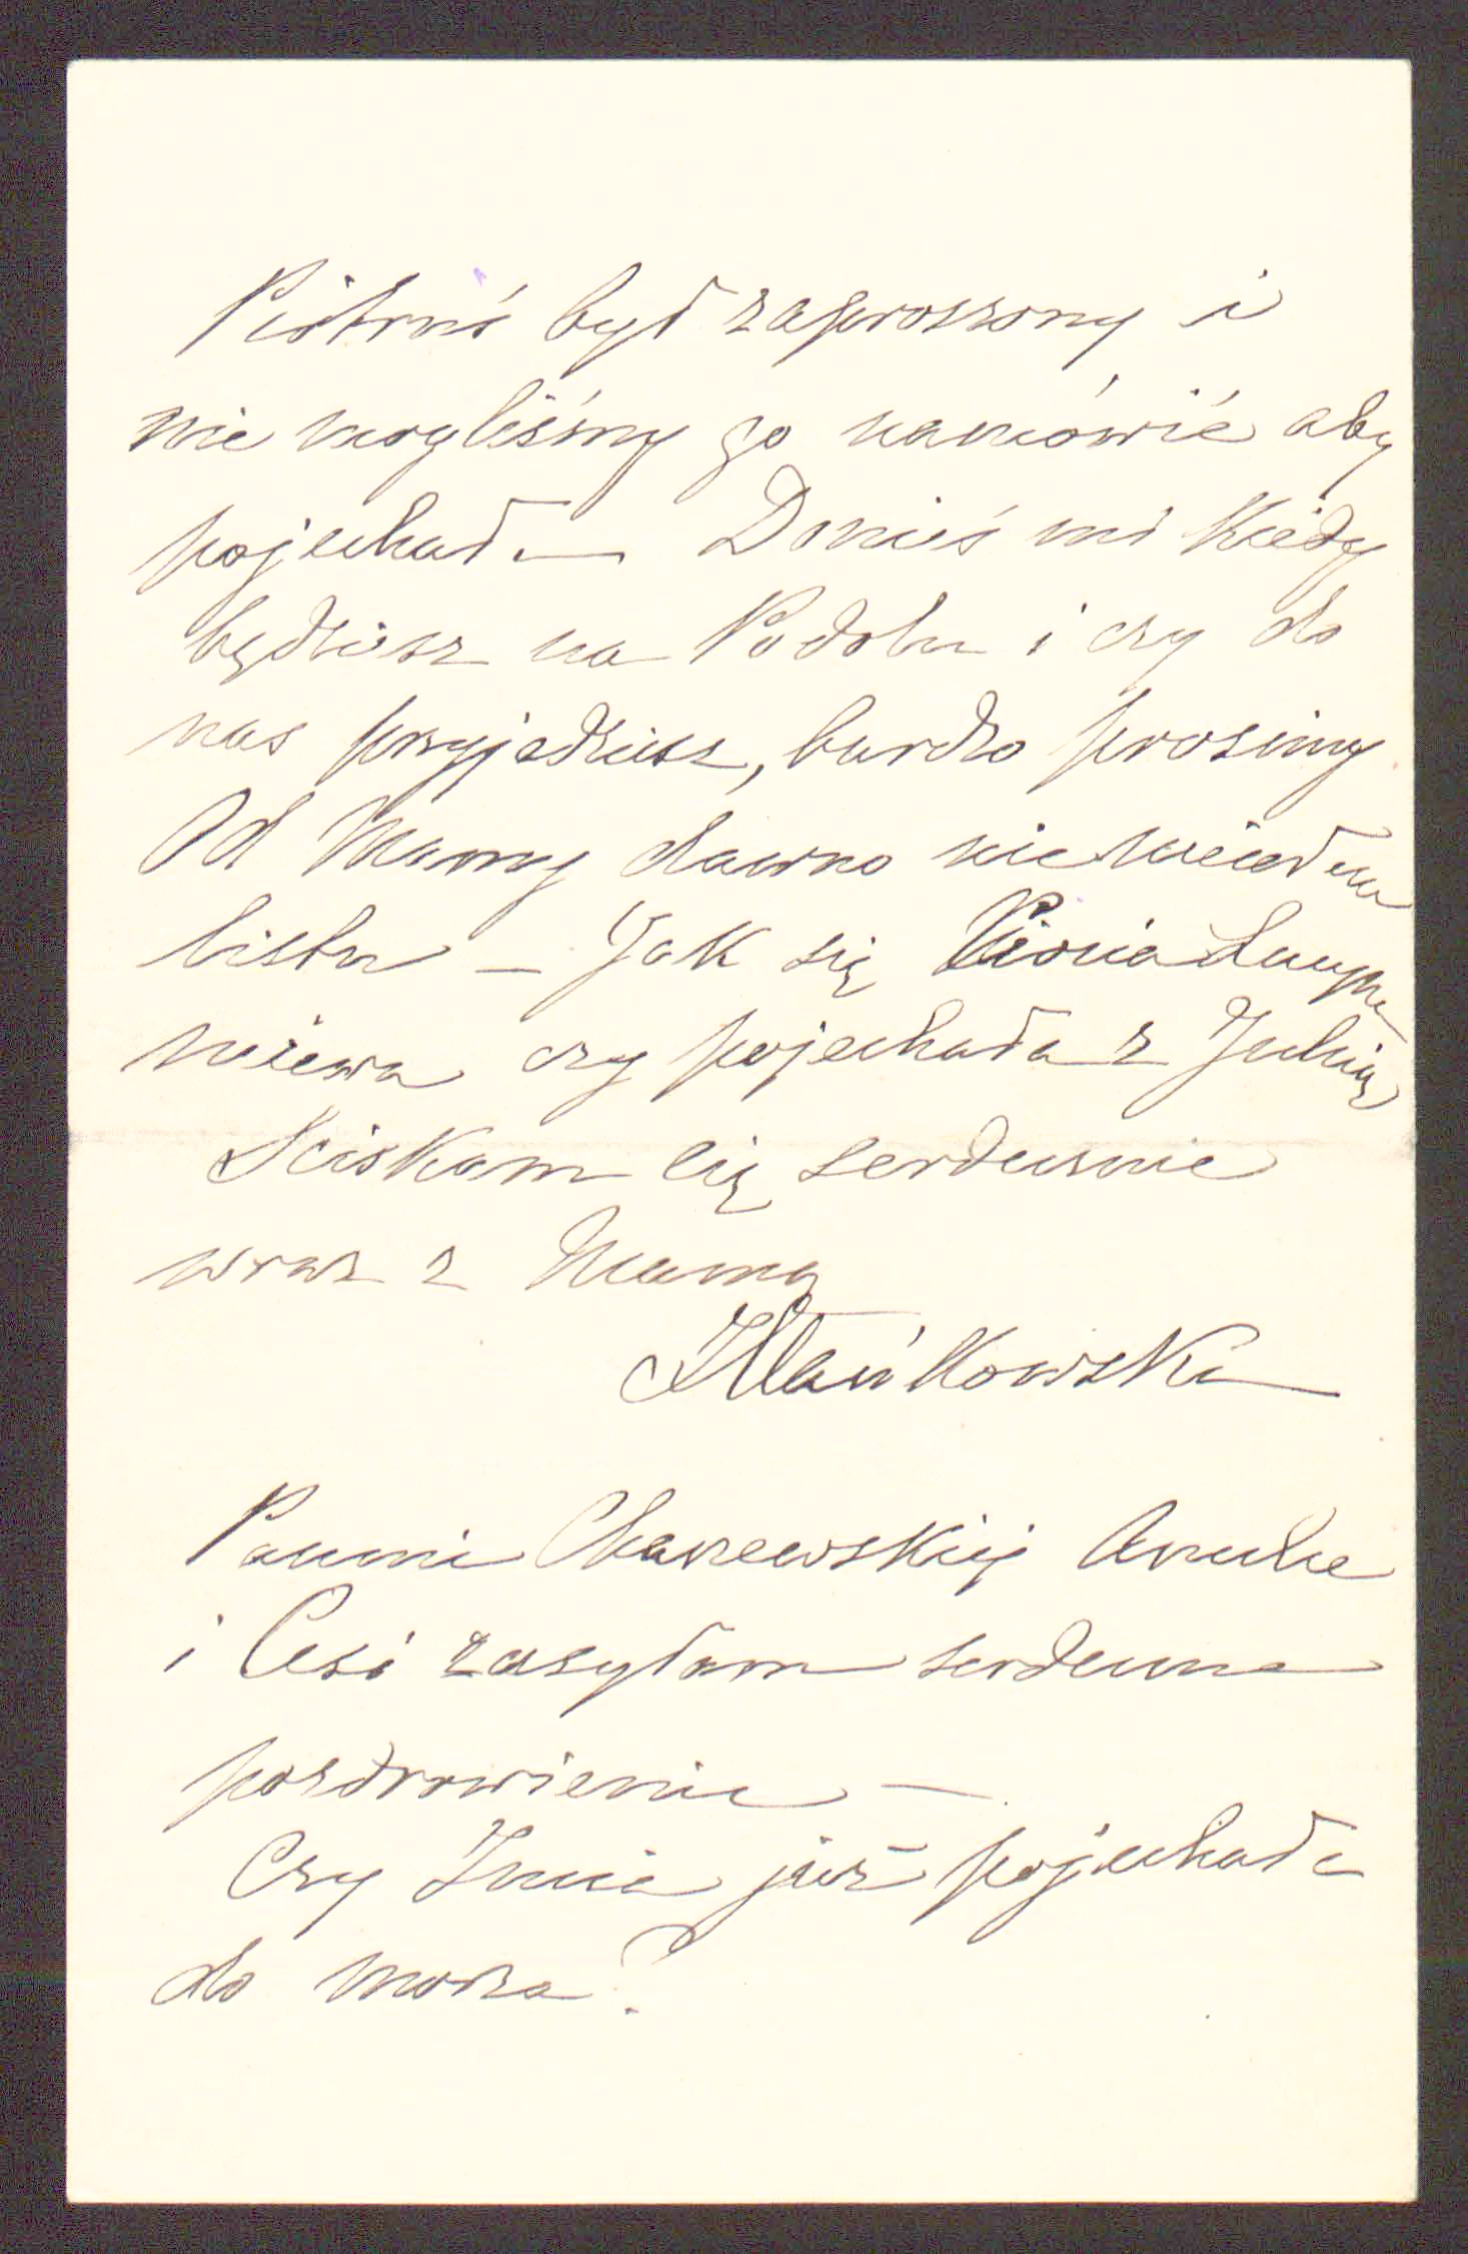 Piotruś był zaproszony i
nie mogliśmy go namówić aby
pojechał — Donieś mi kiedy
będziesz na Podolu i czy do
nas przyjedziesz, bardzo prosimy
Od Mamy dawno nie miałem
listu — Jak się
miewa czy pojechała z Julią
Sciskam cię serdecznie
wraz z Mamą
Mańkowska
Pannie
i Cesi zasyłam serdeczne
pozdrowienie —
Czy Inia już pojechała
do morza?